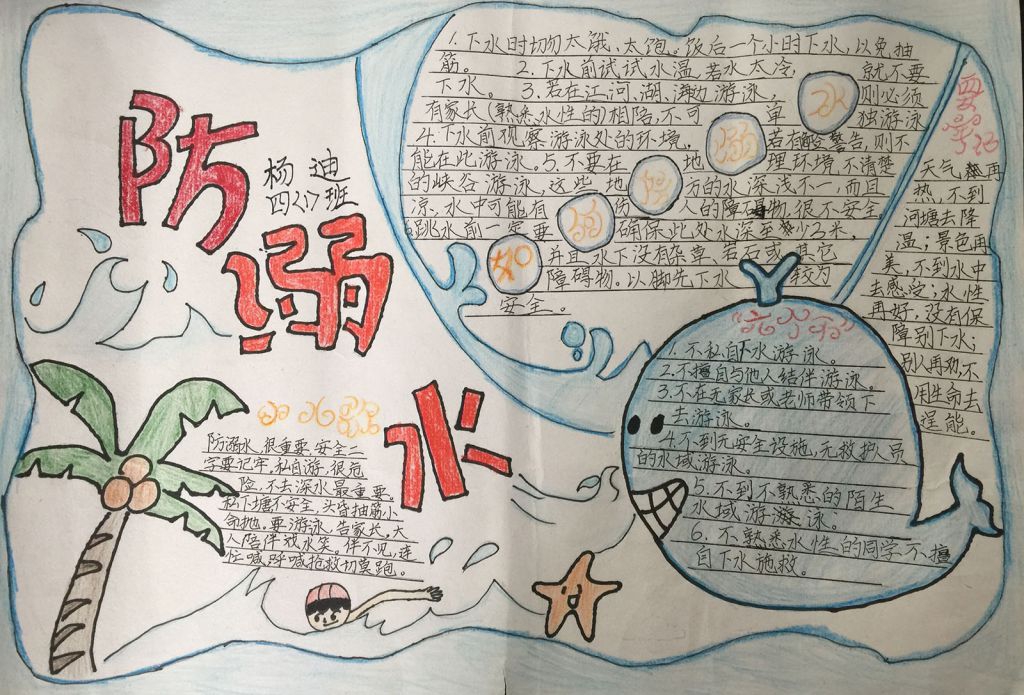 防溺水
杨迪
四(2)班
1.下水时切勿太饿、太饱。饭后一个小时下水，以免抽
筋。 2.下水前试试水温,若水太冷, 就不要
下水。 3.若在江、河、湖、海边游泳， 则必须
有家长(熟悉水性的)相陪,不可 单 独游泳
4.下水前观察游泳处的环境， 若有 警告,则不
能在此游泳。5.不要在 地 理环境不清楚
的峡谷游泳,这些地 方的水深浅不一,而且
凉,水中可能有 伤 人的障碍物,很不安全。
6.跳水前一定要 确保此处水深至少3米，
并且水下没有杂草、岩石或其它
障碍物。以脚先下水 较为
安全。
如
何
防
溺
水
天气热再
热,不到
河塘去降
温;景色再
美,不到水中
去感受;水性
再好,没有保
障别下水;
别人再劝,不
用生命去
逞能。
"六不准"
1.不私自下水游泳。
2.不擅自与他人结伴游泳。
3.不在无家长或老师带领下
去游泳。
4.不到无安全设施,无救护人员
的水域游泳。
5.不到不熟悉的陌生
水域游泳。
6.不熟悉水性的同学不擅
自下水施救。
防溺水,很重要,安全二
字要记牢,私自游,很危
险,不去深水最重要。
私下塘不安全,头昏抽筋小
命抛。要游泳,告家长,大
人陪伴戏水笑。伴不见,连
忙喊,呼喊抢救切莫跑。